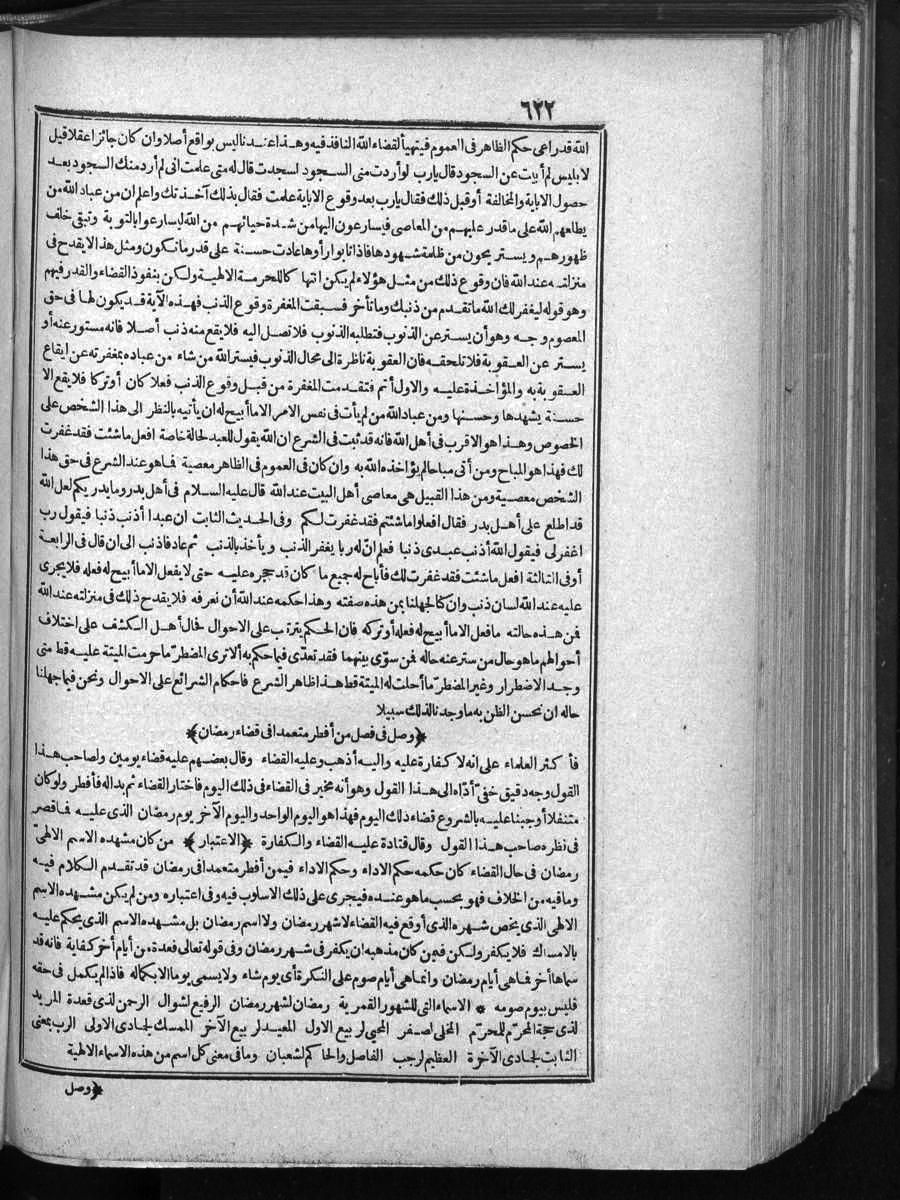 ٦٢٢
الله قدراعى حكم الظاهر فى العموم فيتهيأ لقضاء الله النافذ فيه وهذا عندنا ليس بواقع أصلا وان كان جائزا عقلا قيل
لابليس لم أبيت عن السجود قال يارب لو أردت منى السجود لسجدت قال له متى علمت انى لم أرد منك السجود بعد
حصول الاباية والمخالفة أو قبل ذلك فقال يارب بعد وقوع الاباية علمت فقال بذلك آخذتك واعلم ان من عباد الله من
يطلعهم الله على ما قدر عليهم من المعاصى فيسارعون اليها من شدة حيائهم من الله ليسارعوا بالتوبة وتبقى خلف
ظهورهم ويستريحون من ظلمة شهودها فاذا تابوا رأوها عادت حسنة على قدر ما تكون ومثل هذا لا يقدح فى
منزلته عند الله فان وقوع ذلك من مثل هؤلاء لم يكن انتها كا للحرمة الالهية ولكن بنفوذ القضاء والقدر فيهم
وهو قوله ليغفر لك الله ما تقدم من ذنبك وما تأخر فسبقت المغفرة وقوع الذنب فهذه الآية قد يكون لها فى حق
المعصوم وجه وهو أن يستر عن الذنوب فتطلبه الذنوب فلا تصل اليه فلا يقع منه ذنب أصلا فانه مستور عنه أو
يستر عن العقوبة فلا تلحقه فان العقوبة ناظرة الى محال الذنوب فيستر الله من شاء من عباده بمغفرته عن ايقاع
العقوبة به والمؤاخذة عليه والاول أتم فتقدمت المغفرة من قبل وقوع الذنب فعلا كان أو تركا فلا يقع الا
حسنة يشهدها وحسنها ومن عباد الله من لم يأت فى نفس الامر الا ما أبيح له ان يأتيه بالنظر الى هذا الشخص على
الخصوص وهذا هو الاقرب فى أهل الله فانه قد ثبت فى الشرع ان الله يقول للعبد لحالة خاصة افعل ما شئت فقد غفرت
لك فهذا هو المباح ومن أتى مباحا لم يؤاخذه الله به وان كان فى العموم فى الظاهر معصية فما هو عند الشرع فى حق هذا
الشخص معصية ومن هذا القبيل هى معاصى أهل البيت عند الله قال عليه السلام فى أهل بدر وما يدريكم لعل الله
قد اطلع على أهل بدر فقال افعلوا ما شئتم فقد غفرت لكم وفى الحديث الثابت ان عبدا أذنب ذنبا فيقول رب
اغفر لى فيقول الله أذنب عبدى ذنبا فعلم انّ له ربا يغفر الذنب ويأخذ بالذنب ثم عاد فاذنب الى ان قال فى الرابعة
أو فى الثالثة افعل ما شئت فقد غفرت لك فأباح له جميع ما كان قد حجره عليه حتى لا يفعل الا ما أبيح له فعله فلا يجرى
عليه عند الله لسان ذنب وان كنا لجهلنا بمن هذه صفته وهذا حكمه عند الله أن نعرفه فلا يقدح ذلك فى منزلته عند الله
فمن هذه حالته ما فعل الا ما أبيح له فعله أو تركه فان الحكم يترتب على الاحوال فحال أهل الكشف على اختلاف
أحوالهم ما هو حال من ستر عنه حاله فمن سوّى بينهما فقد تعدّى فيما حكم به ألا ترى المضطرّ ما حرمت الميتة عليه قط متى
وجد الاضطرار وغير المضطرّ ما أحلت له الميتة قط هذا ظاهر الشرع فاحكام الشرائع على الاحوال ونحن فيما جهلنا
حاله ان نحسن الظن به ما وجدنا لذلك سبيلا
﴿وصل فى فصل من أفطر متعمدا فى قضاء رمضان﴾
فأكثر العلماء على انه لا كفارة عليه واليه أذهب وعليه القضاء وقال بعضهم عليه قضاء يومين ولصاحب هذا
القول وجه دقيق خفىّ أدّاه الى هذا القول وهو أنه مخير فى القضاء فى ذلك اليوم فاختار القضاء ثم بدا له فأفطر ولو كان
متنفلا أوجبنا عليه بالشروع قضاء ذلك اليوم فهذا هو اليوم الواحد واليوم الآخر يوم رمضان الذى عليه فما قصر
فى نظره صاحب هذا القول وقال قتادة عليه القضاء والكفارة ﴿الاعتبار﴾ من كان مشهده الاسم الالهىّ
رمضان فى حال القضاء كان حكمه حكم الاداء وحكم الاداء فيمن أفطر متعمدا فى رمضان قد تقدم الكلام فيه
وما فيه من الخلاف فهو بحسب ما هو عنده فيجرى على ذلك الاسلوب فيه وفى اعتباره ومن لم يكن مشهده الاسم
الالهى الذى يخص شهره الذى أوقع فيه القضاء لا شهر رمضان ولا اسم رمضان بل مشهده الاسم الذى يحكم عليه
بالامساك فلا يكفر ولكن فيمن كان مذهبه ان يكفر فى شهر رمضان وفى قوله تعالى فعدة من أيام أخر كفاية فانه قد
سماها أخر فما هى أيام رمضان وانما هى أيام صوم على النكرة أى يوم شاء ولا يسمى يوما الا بكماله فاذا لم يكمل فى حقه
فليس بيوم صومه * الاسماء التى للشهور القمرية رمضان لشهر رمضان الرفيع لشوال الرحمن لذى قعدة المريد
لذى حجة المحرّم للمحرّم المخلى لصفر المحيى لربيع الاول المعيد لربيع الآخر الممسك لجادى الاولى الرب بمعنى
الثابت لجادى الآخرة العظيم لرجب الفاصل والحاكم لشعبان وما فى معنى كل اسم من هذه الاسماء الالهية
﴿وصل